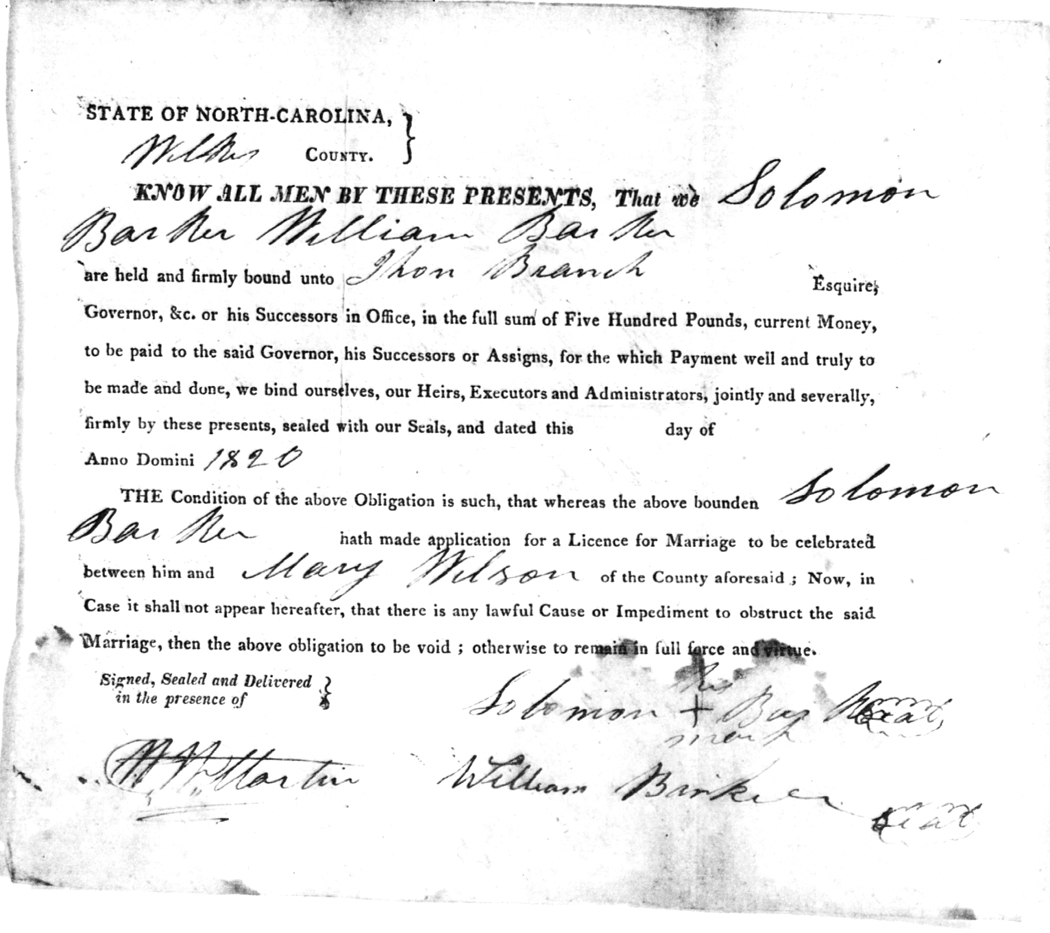 STATE OF NORTH-CAROLINA,
Wilkes COUNTY.
KNOW ALL MEN BY THESE PRESENTS, That we Solomon
Barker William Barker
are held and firmly bound unto Jhon Branch Esquire,
Governor, &c. or his Successors in Office, in the full sum of Five Hundred Pounds, current Money,
to be paid to the said Governor, his Successors or Assigns, for the which Payment well and truly to
be made and done, we bind ourselves, our Heirs, Executors and Administrators, jointly and severally,
firmly by these presents, sealed with our Seals, and dated this day of
Anno Domini 1820
THE Condition of the above Obligation is such, that whereas the above bounden Solomon
Barker hath made application for a Licence for Marriage to be celebrated
between him and Mary Wilson of the County aforesaid ; Now, in
Case it shall not appear hereafter, that there is any lawful Cause or Impediment to obstruct the said
Marriage, then the above obligation to be void ; otherwise to remain in full force and virtue.
Signed, Sealed and Delivered
in the presence of
his
Solomon + Barker Seal
mark
Martin William Barker Seal